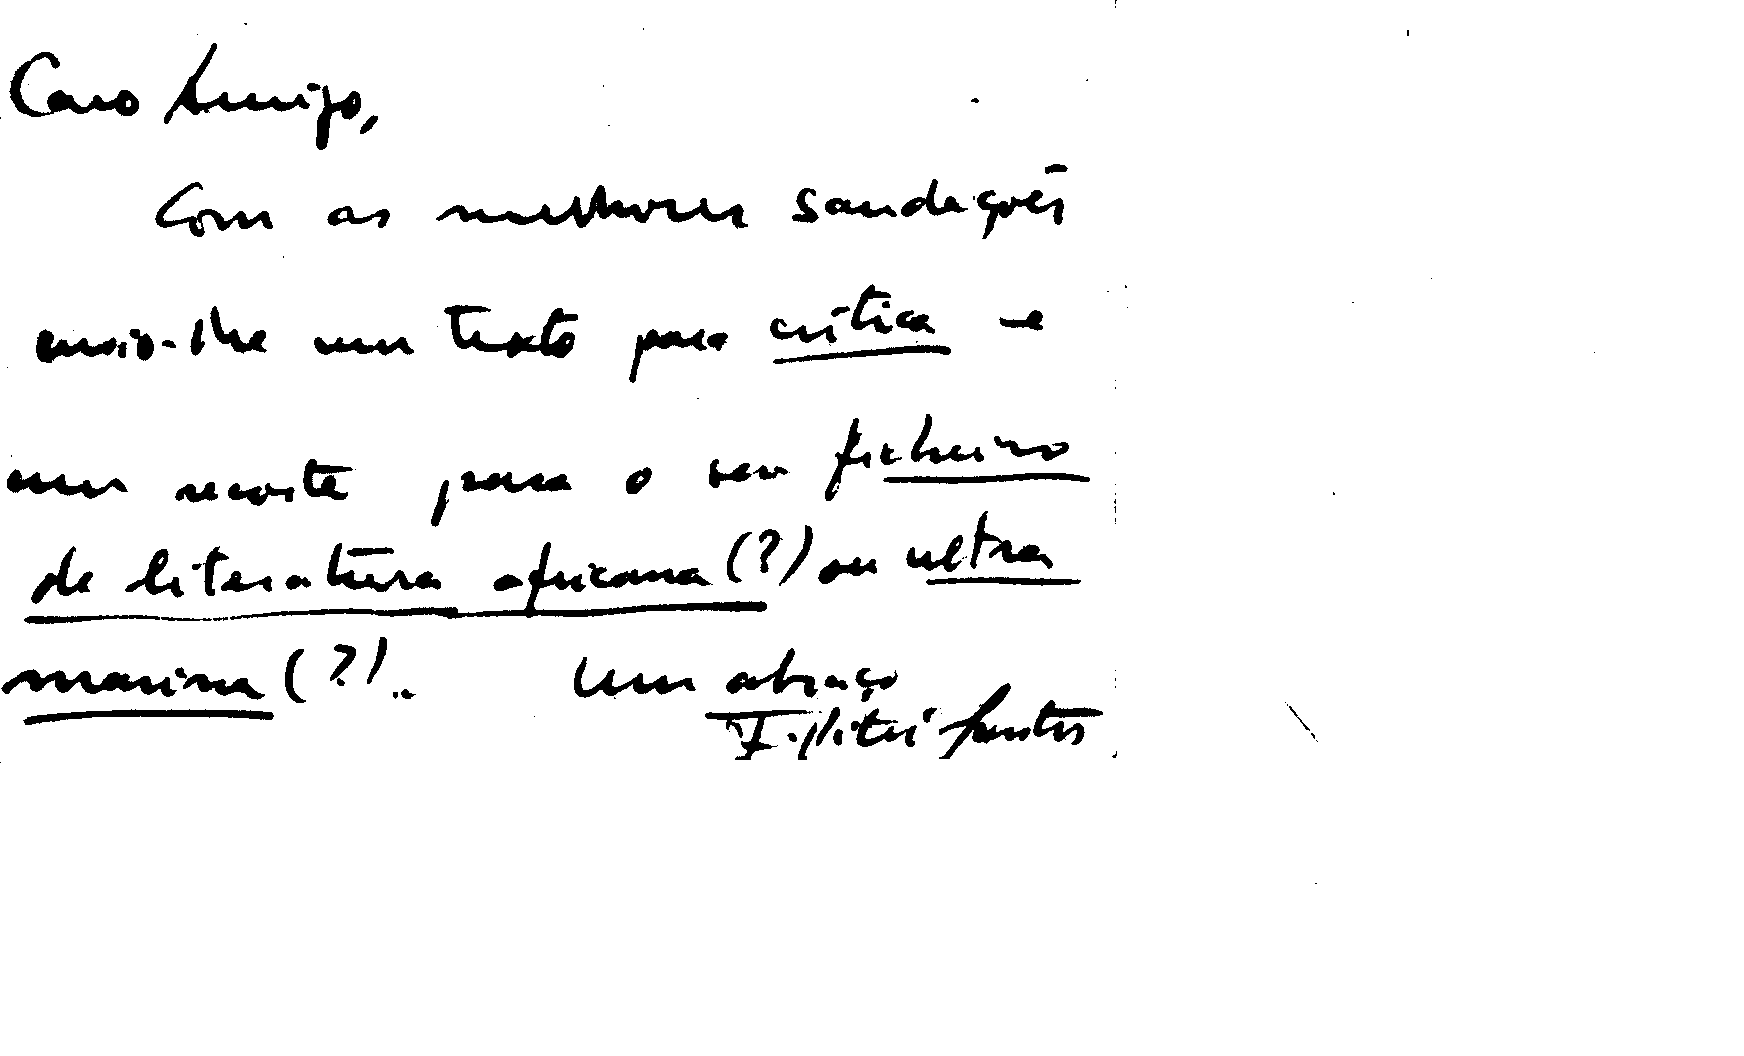 Caro Amigo,
Com as melhores saudações
envio-lhe um texto para crítica e
um recorte para o seu ficheiro
de literatura africana (?) ou ultra
marina (?)..  Um abraço